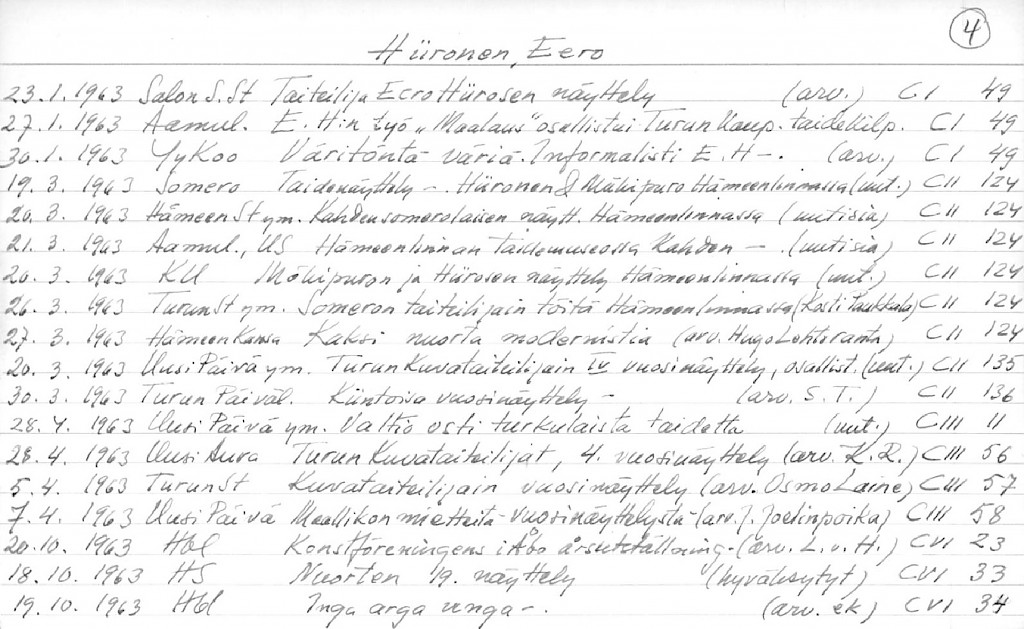 4
Hiironen, Eero
23.1.1963 Salon S.St Taiteilija Eero Hiirosen näyttely (arv.) CI 49
27.1.1963 Aamul. E. H:n työ "Maalaus" osallistui Turun Kaup. taidekilp. CI 49
30.1.1963 YyKoo Väritöntä väriä. Informalisti E. H-. (arv.) CI 49
19.3.1963 Somero Taidenäyttely -. Hiironen & Mäkipuro Hämeenlinnassa (uut.) CII 124
20.3.1963 Hämeen St ym. Kahden somerolaisen näytt. Hämeenlinnassa (uutisia) CII 124
21.3.1963 Aamul., US Hämeenlinnan Taidemuseossa Kahden -. (uutisia) CII 124
26.3.1963 KU Mäkipuron ja Hiirosen näyttely Hämeenlinnassa (uut.) CII 124
26.3.1963 Turun St ym. Someron taiteilijain töitä Hämeenlinnassa (Kosti Paukkala) CII 124
27.3.1963 Hämeen Kansa Kaksi nuorta modernistia (arv. Hugo Lehtoranta) CII 124
20.3.1963 Uusi Päivä ym. Turun Kuvataiteilijain IV vuosinäyttely, osallist. (uut.) CII 135
30.3.1963 Turun Päiväl. Kiintoisa vuosinäyttely - (arv. S.T.) CII 136
28.4.1963 Uusi Päivä ym. Valtio osti turkulaista taidetta (uut.) CIII 11
28.4.1963 Uusi Aura Turun Kuvataiteilijat, 4. vuosinäyttely (arv. K.R.) CIII 56
5.4.1963 Turun St Kuvataiteilijain vuosinäyttely (arv. Osmo Laine) CIII 57
7.4.1963 Uusi Päivä Maallikon mietteitä vuosinäyttelystä (arv. J. Joelinpoika) CIII 58
20.10.1963 Hbl Konstföreningens i Åbo årsutställning. (arv. L.v.H.) CVI 23
18.10.1963 HS Nuorten 19. näyttely (hyväksytyt) CVI 33
19.10.1963 Hbl Inga arga unga -. (arv. ek) CVI 34